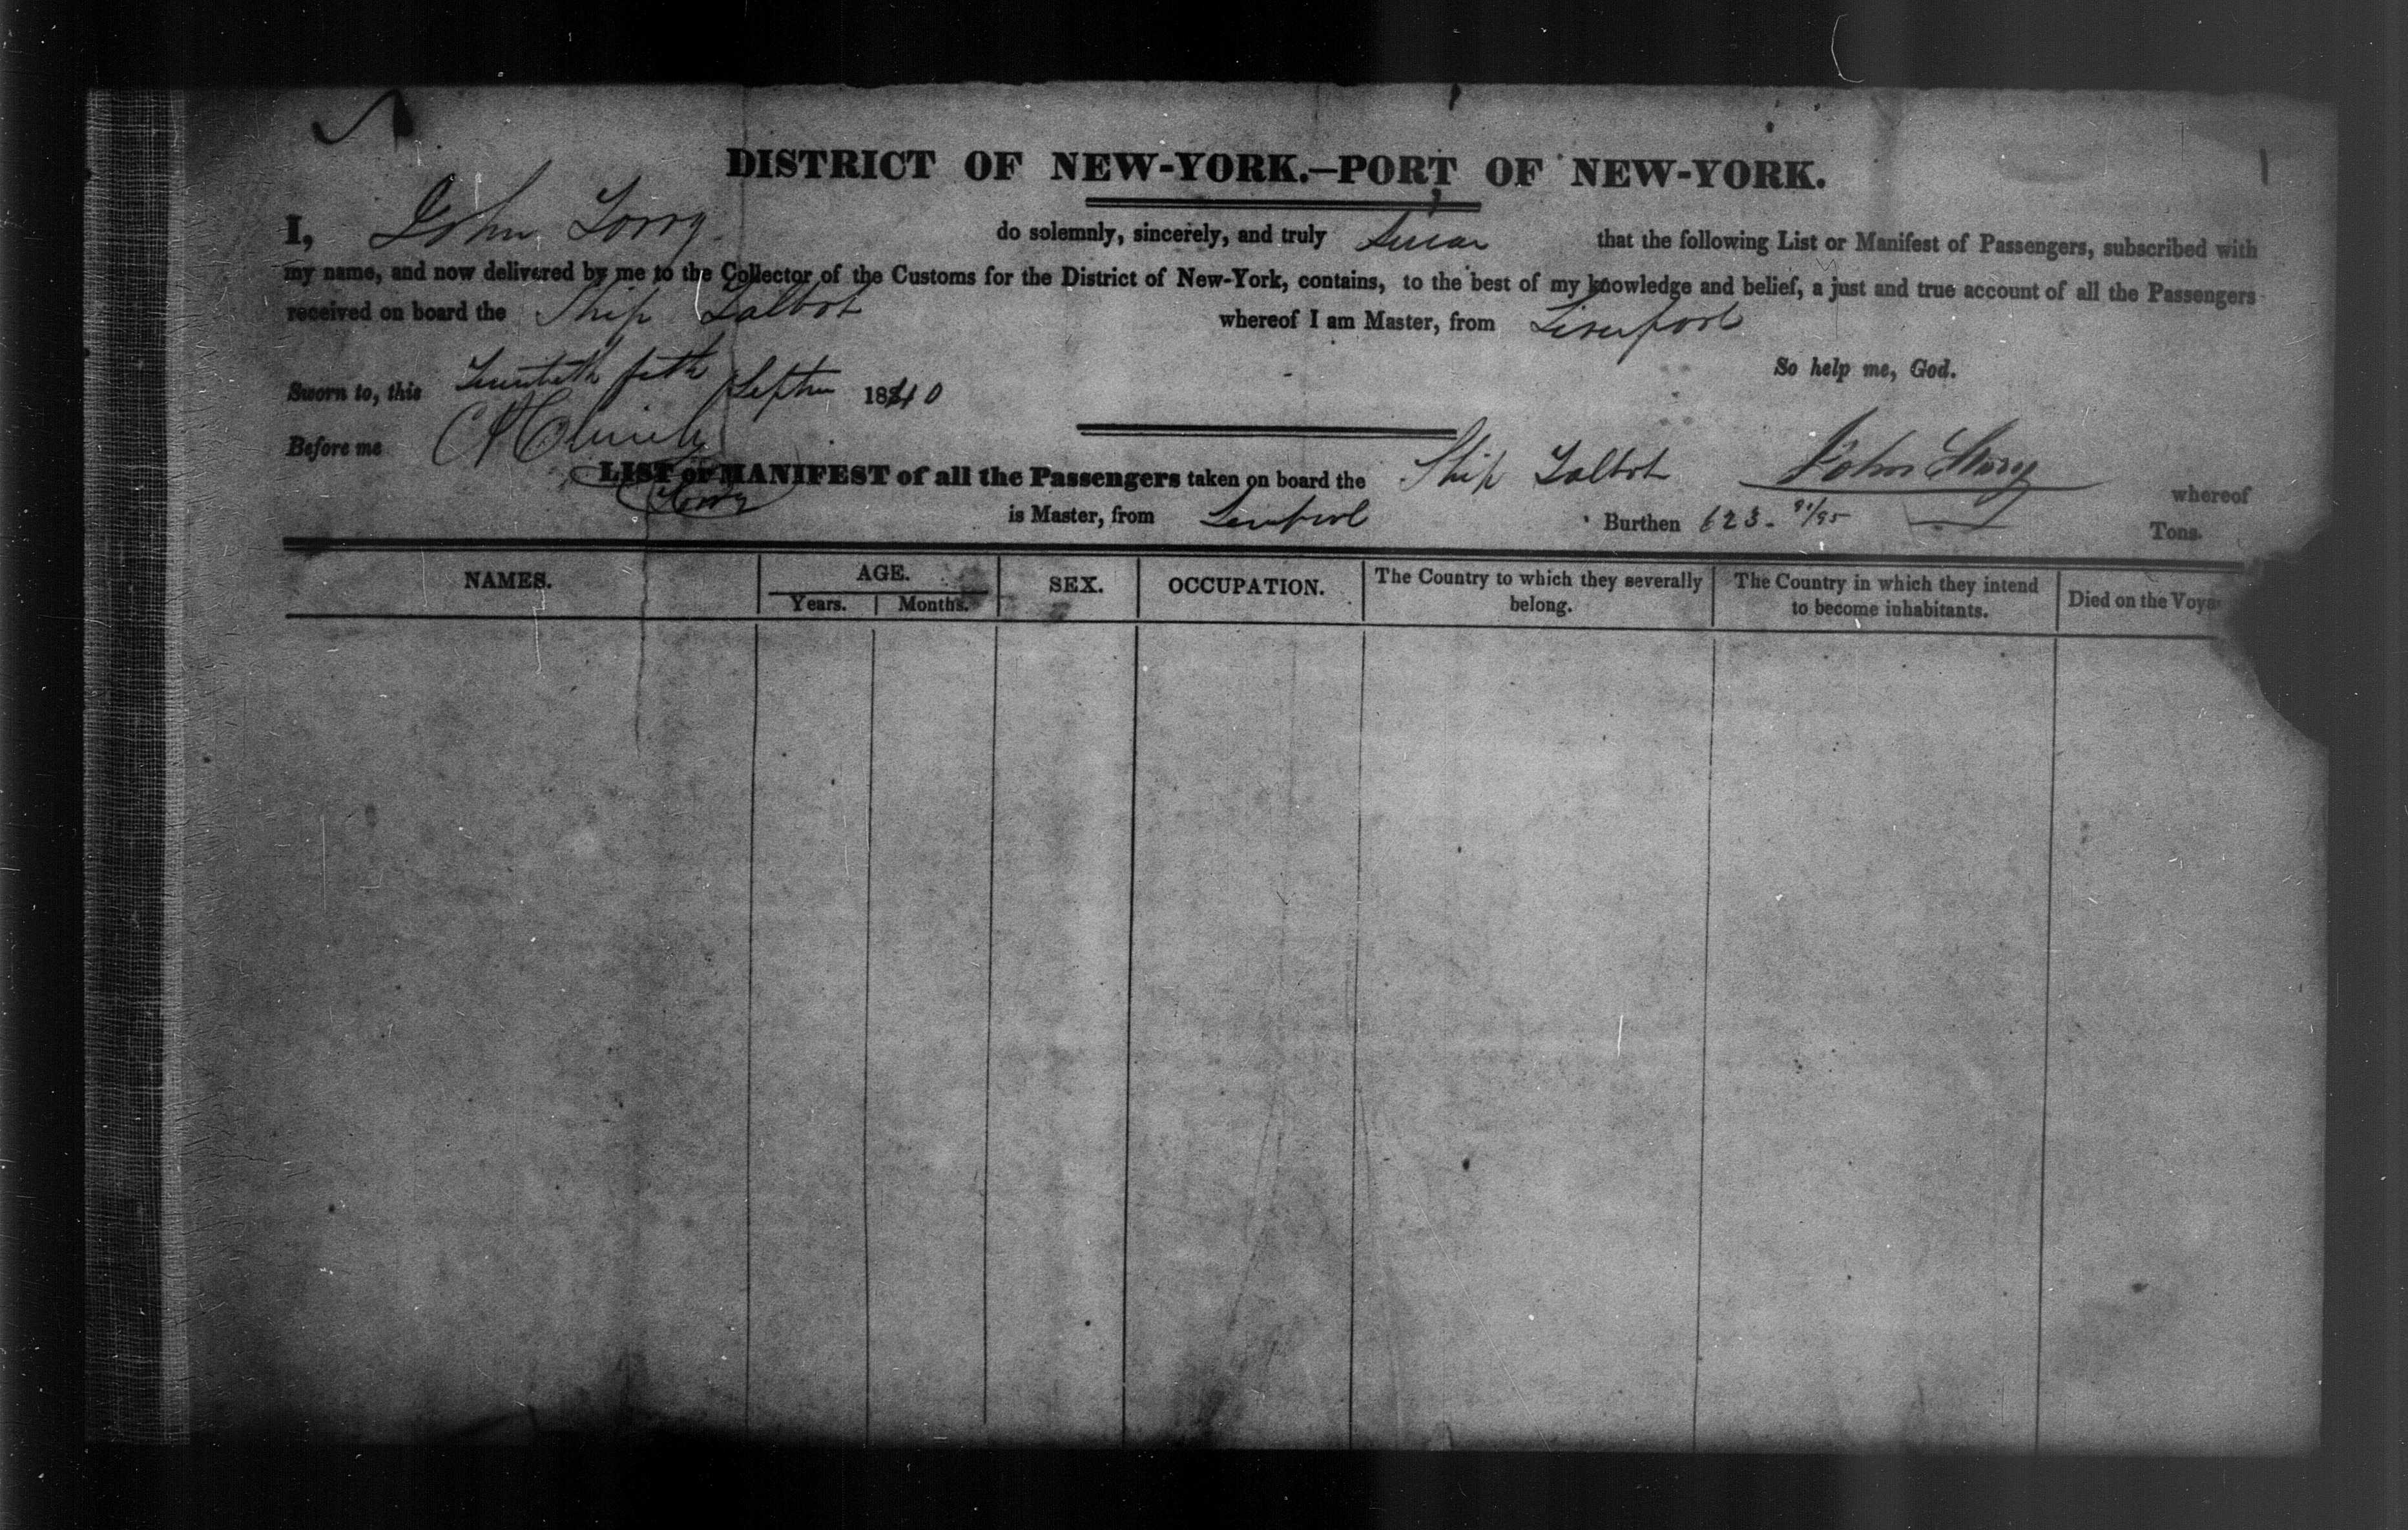 DISTRICT OF NEW-YORK.—PORT OF NEW-YORK.
I, John Torry do solemnly, sincerely, and truly Swear that the following List or Manifest of Passengers, subscribed with
my name, and now delivered by me to the Collector of the Customs for the District of New-York, contains, to the best of my knowledge and belief, a just and true account of all the Passengers
received on board the Ship Talbot whereof I am Master, from Liverpool
So help me, God.
Sworn to, this fifth 1840
Before me
LIST or MANIFEST of all the Passengers taken on board the Ship Talbot whereof
is Master, from Liverpool Burthen 623. 91/95 Tons.
NAMES. AGE. SEX. OCCUPATION. The Country to which they severally belong. The Country in which they intend to become inhabitants. Died on the Voya
Years. Months.